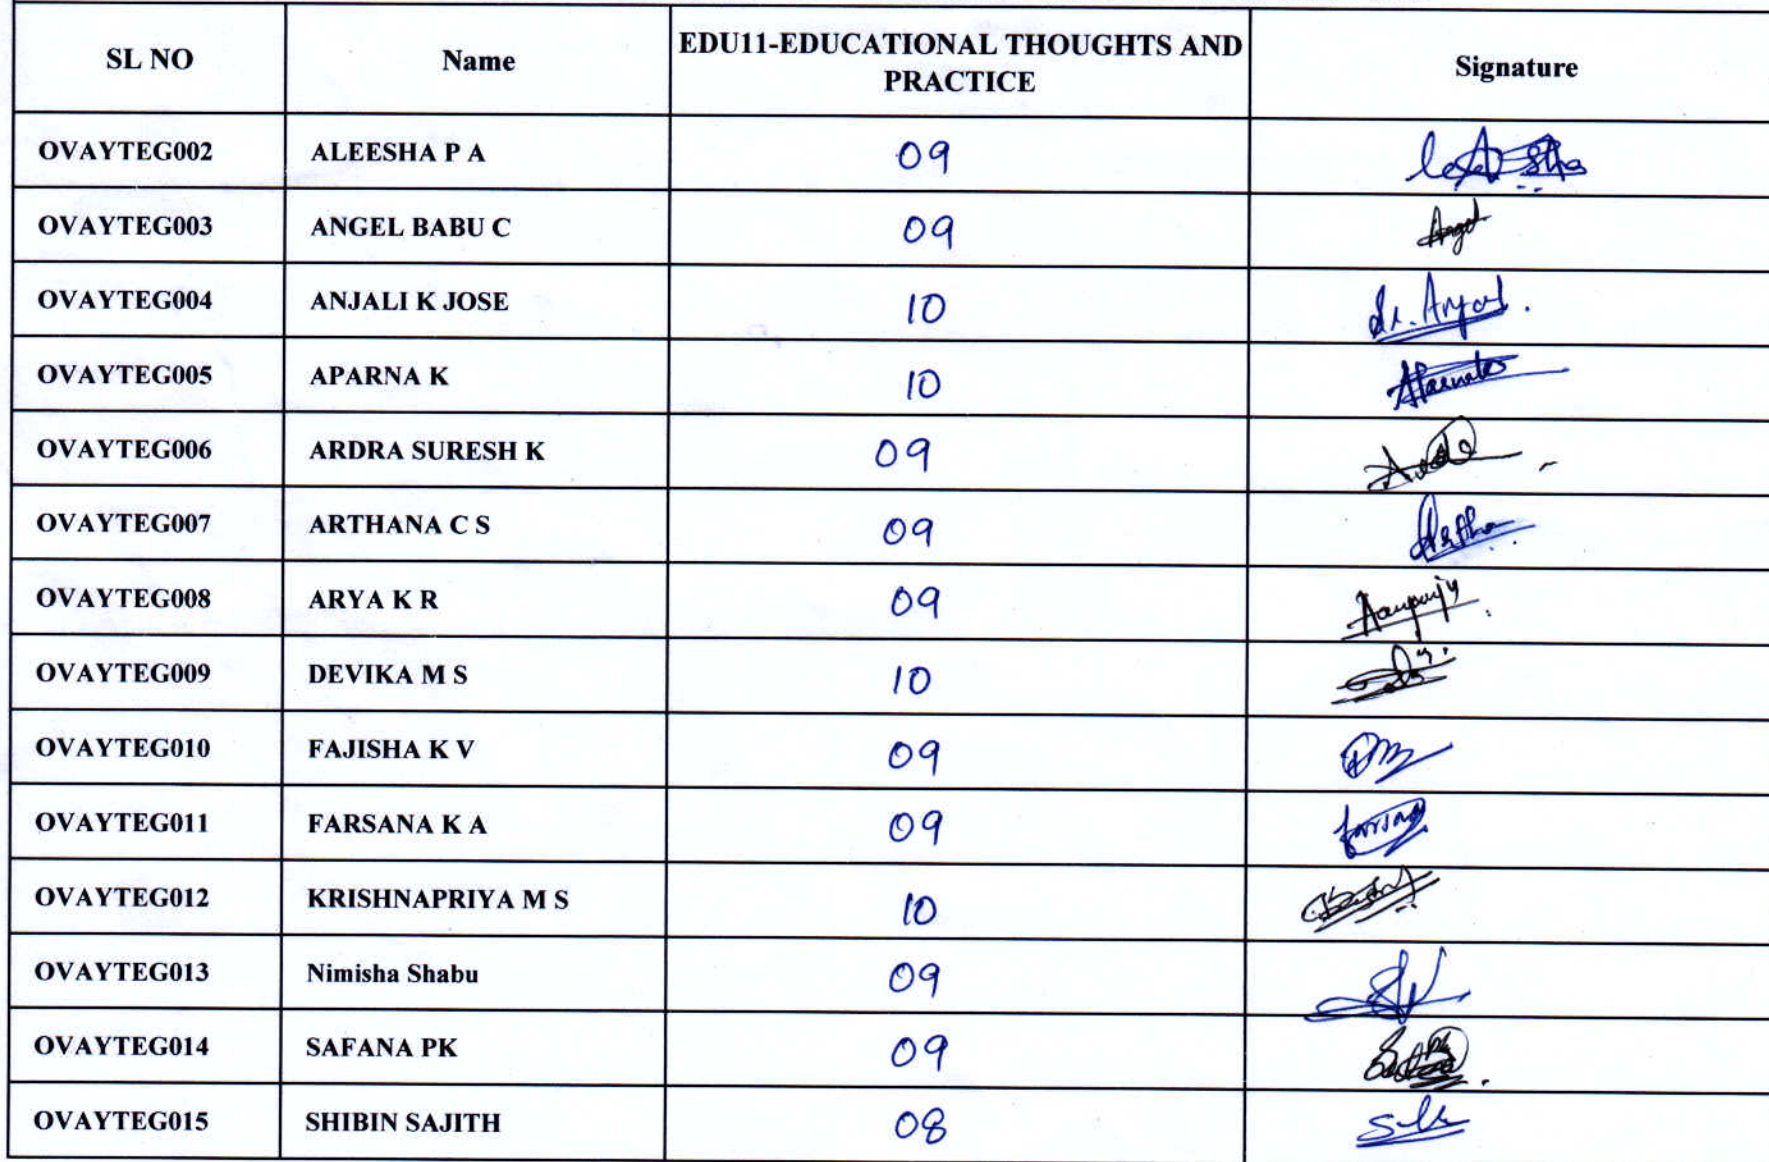 SL NO Name EDU11-EDUCATIONAL THOUGHTS AND PRACTICE Signature
OVAYTEG002 ALEESHA P A 09
OVAYTEG003 ANGEL BABU C 09 Angel
OVAYTEG004 ANJALI K JOSE 10
OVAYTEG005 APARNA K 10
OVAYTEG006 ARDRA SURESH K 09
OVAYTEG007 ARTHANA C S 09
OVAYTEG008 ARYA K R 09
OVAYTEG009 DEVIKA M S 10
OVAYTEG010 FAJISHA K V 09
OVAYTEG011 FARSANA K A 09
OVAYTEG012 KRISHNAPRIYA M S 10
OVAYTEG013 Nimisha Shabu 09
OVAYTEG014 SAFANA PK 09
OVAYTEG015 SHIBIN SAJITH 08